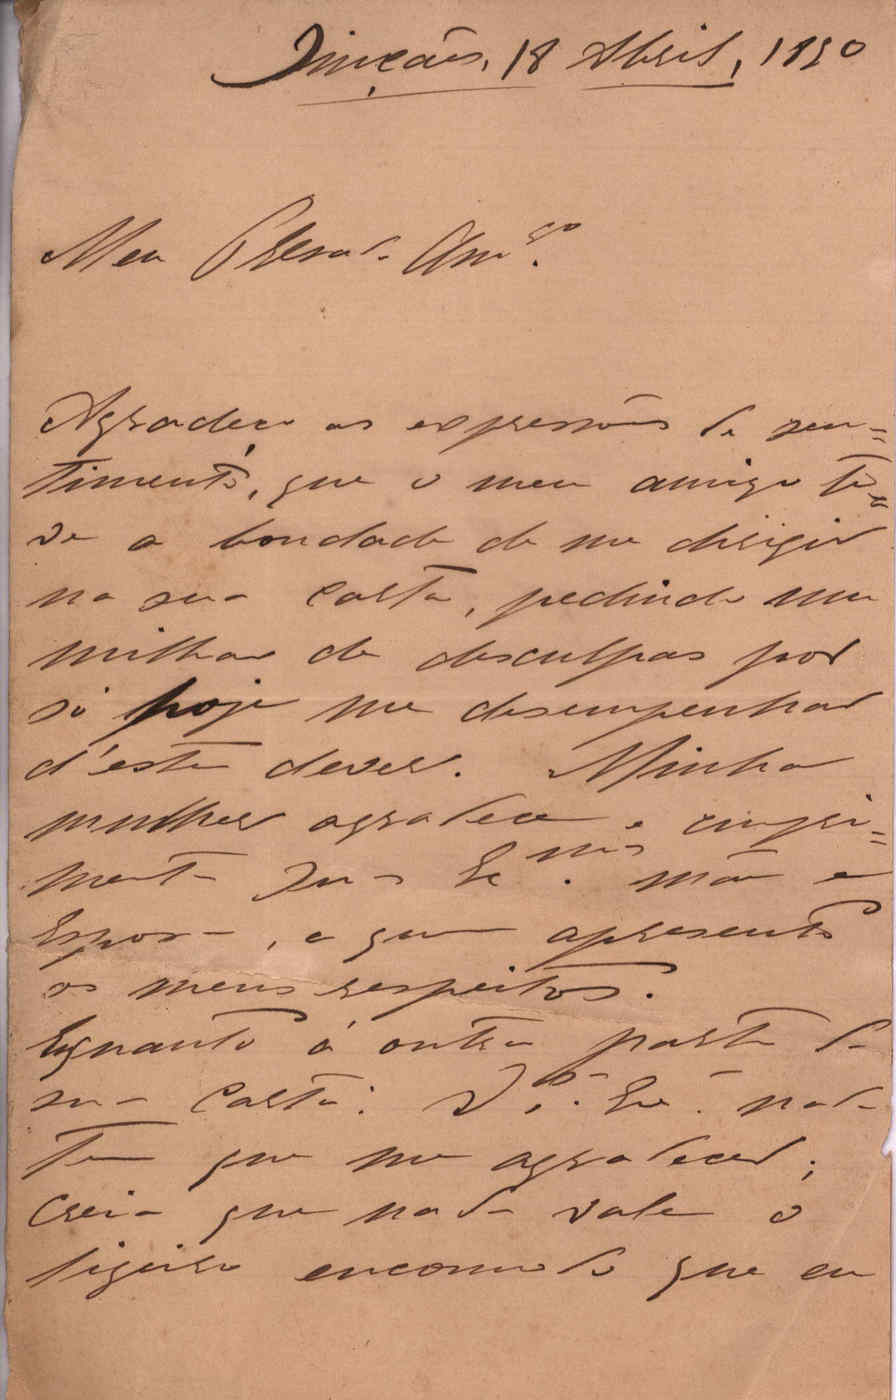 18 Abril, 1890
Meu Presado Am.go
Agradeço as expressões de sen=
timento, que o meu amigo te=
ve a bondade de me dirigir
na sua carta, pedindo um
milhar de desculpas por
só hoje me desempenhar
d'este dever. Minha
mulher agradece e cumpri=
menta Suas Ex.mas mãe e
Esposa, a quem apresento
os meus respeitos.
Enquanto á outra parte da
sua carta: V.ª Exª nada
tem que me agradecer;
creia que nada vale o
ligeiro encommodo que eu